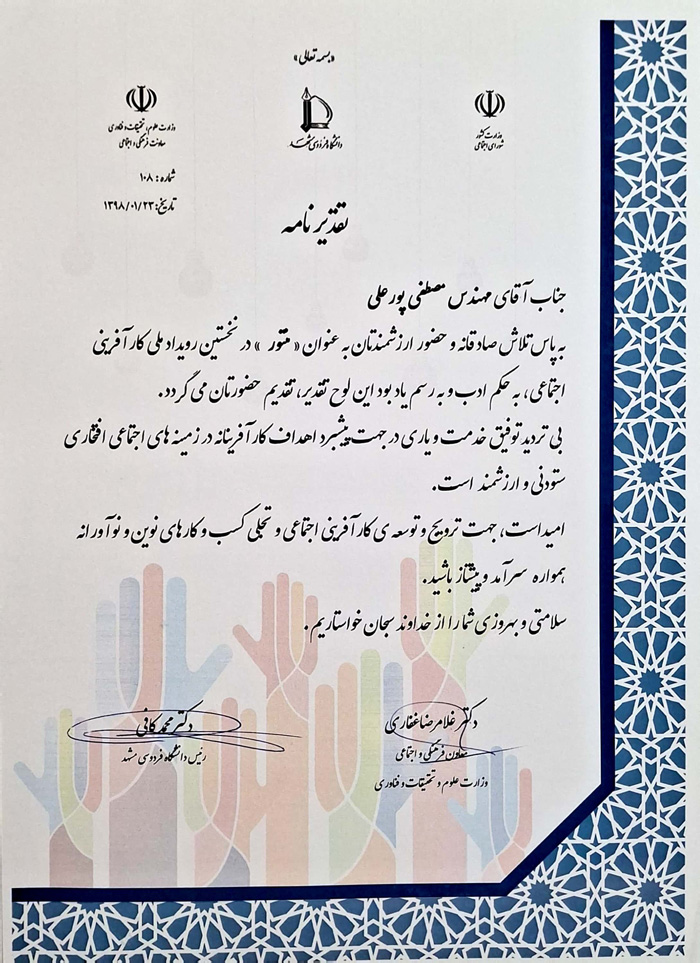 «بسمه تعالی»
وزارت کشور
شورای اجتماعی
دانشگاه فردوسی مشهد
وزارت علوم، تحقیقات و فناوری
معاونت فرهنگی و اجتماعی
شماره: ۱۰۸
تاریخ: ۱۳۹۸/۰۱/۲۳
تقدیرنامه
جناب آقای مهندس مصطفی پورعلی
به پاس تلاش صادقانه و حضور ارزشمندتان به عنوان «منتور» در نخستین رویداد ملی کارآفرینی
اجتماعی، به حکم ادب و به رسم یادبود این لوح تقدیر، تقدیم حضورتان می گردد.
بی تردید توفیق خدمت و یاری در جهت پیشبرد اهداف کارآفرینانه در زمینه های اجتماعی افتخاری
ستودنی و ارزشمند است.
امیداست، جهت ترویج و توسعه ی کارآفرینی اجتماعی و تجلی کسب و کارهای نوین و نوآورانه
همواره سرآمد و پیشتاز باشید.
سلامتی و بهروزی شما را از خداوند سبحان خواستاریم.
دکتر غلامرضا غفاری
معاون فرهنگی و اجتماعی
وزارت علوم و تحقیقات و فناوری
دکتر محمد کافی
رئیس دانشگاه فردوسی مشهد